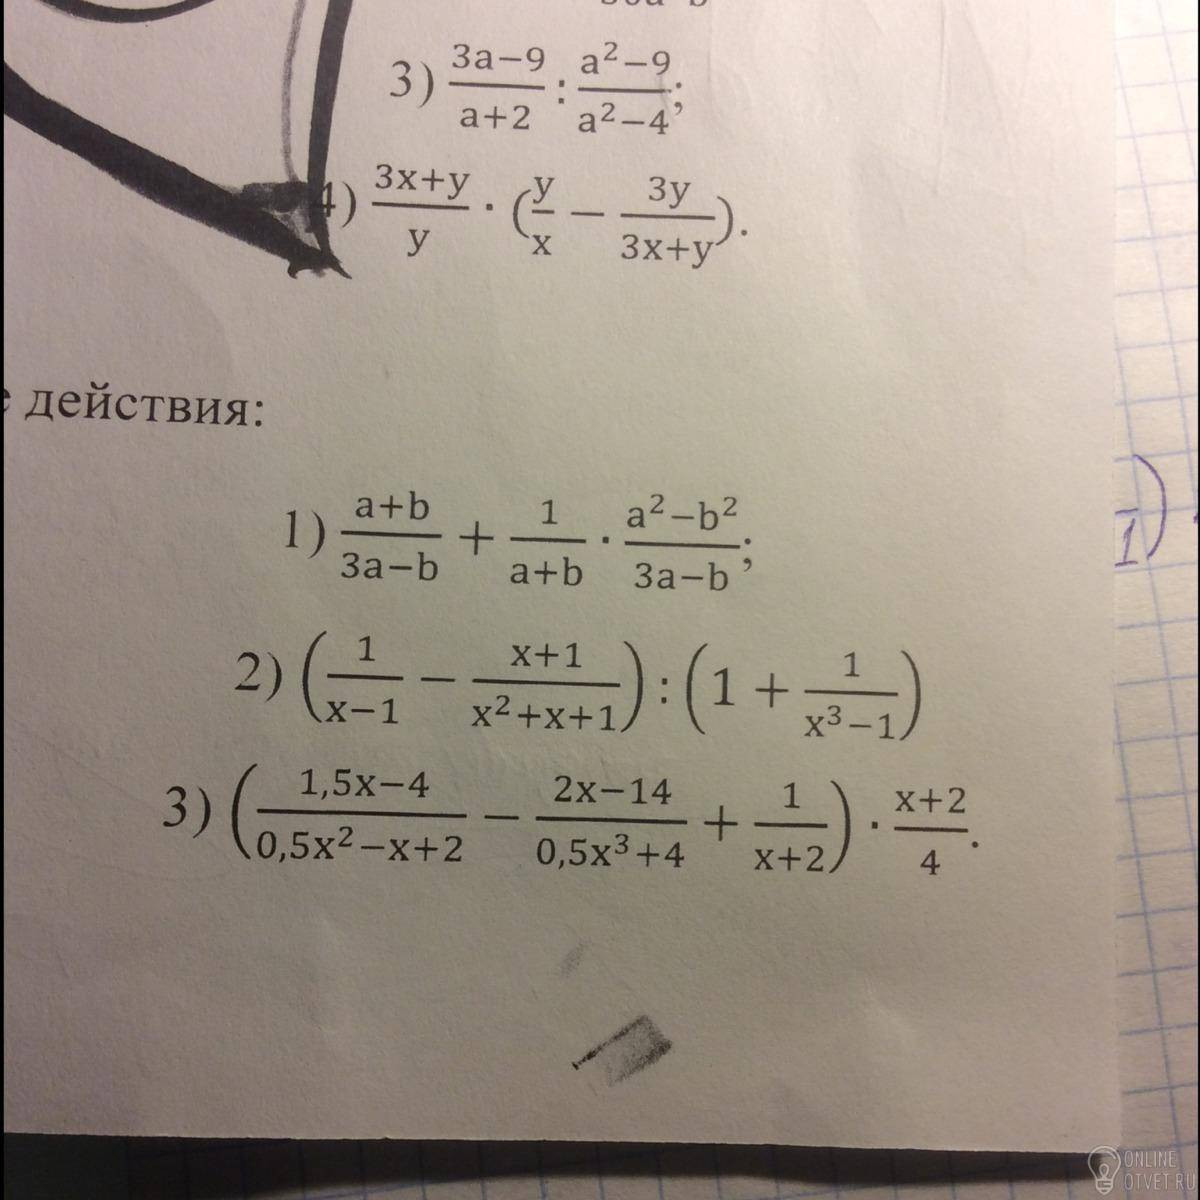 3) (3a−9)/(a+2) : (a²−9)/(a²−4);
4) (3x+y)/y · (y/x − 3y/(3x+y)).
действия:
1) (a+b)/(3a−b) + 1/(a+b) · (a²−b²)/(3a−b);
2) (1/(x−1) − (x+1)/(x²+x+1)) : (1 + 1/(x³−1))
3) ((1,5x−4)/(0,5x²−x+2) − (2x−14)/(0,5x³+4) + 1/(x+2)) · (x+2)/4.
ONLINE
OTVET.RU